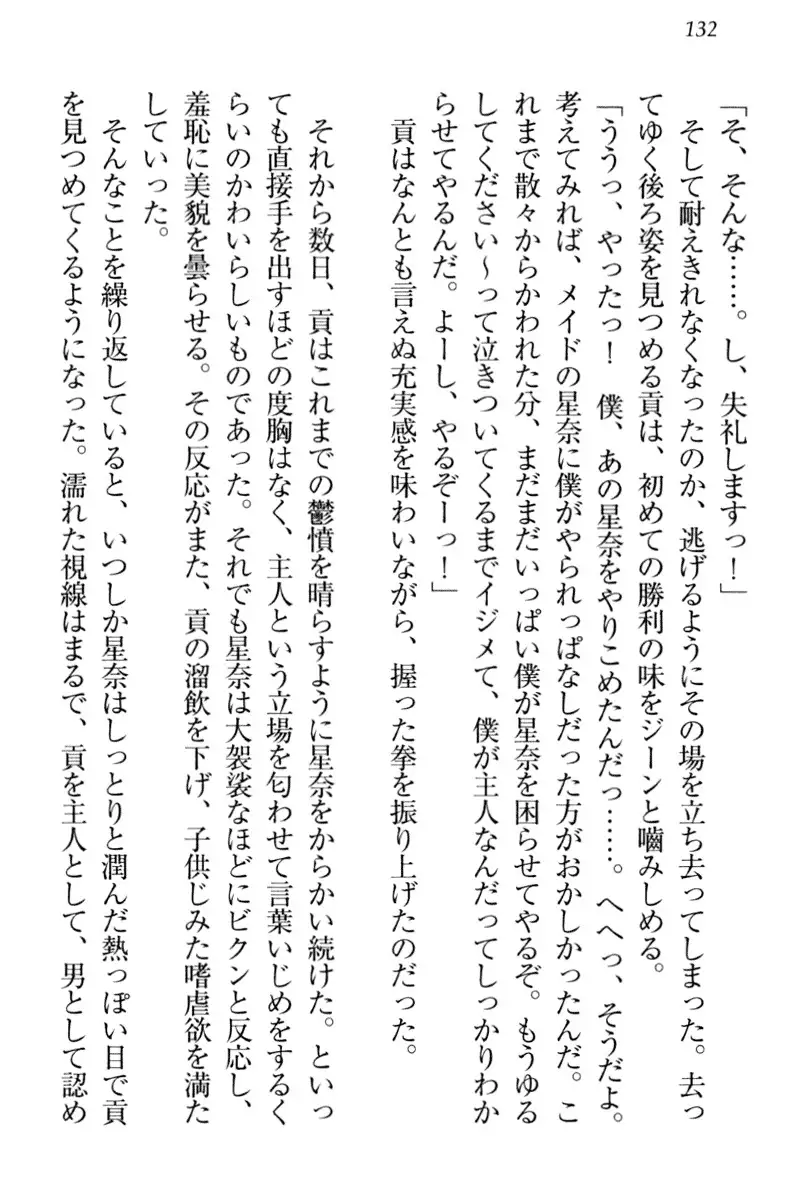 132
「そ、そんな……。し、失礼しますっ！」
　そして耐えきれなくなったのか、逃げるようにその場を立ち去ってしまった。去っ
てゆく後ろ姿を見つめる貢は、初めての勝利の味をジーンと嚙みしめる。
「ううっ、やったっ！　僕、あの星奈をやりこめたんだっ……。へへっ、そうだよ。
考えてみれば、メイドの星奈に僕がやられっぱなしだった方がおかしかったんだ。こ
れまで散々からかわれた分、まだまだいっぱい僕が星奈を困らせてやるぞ。もうゆる
してください～って泣きついてくるまでイジメて、僕が主人なんだってしっかりわか
らせてやるんだ。よーし、やるぞーっ！」
　貢はなんとも言えぬ充実感を味わいながら、握った拳を振り上げたのだった。
　それから数日、貢はこれまでの鬱憤を晴らすように星奈をからかい続けた。といっ
ても直接手を出すほどの度胸はなく、主人という立場を匂わせて言葉いじめをするく
らいのかわいらしいものであった。それでも星奈は大袈裟なほどにビクンと反応し、
羞恥に美貌を曇らせる。その反応がまた、貢の溜飲を下げ、子供じみた嗜虐欲を満た
していった。
　そんなことを繰り返していると、いつしか星奈はしっとりと潤んだ熱っぽい目で貢
を見つめてくるようになった。濡れた視線はまるで、貢を主人として、男として認め